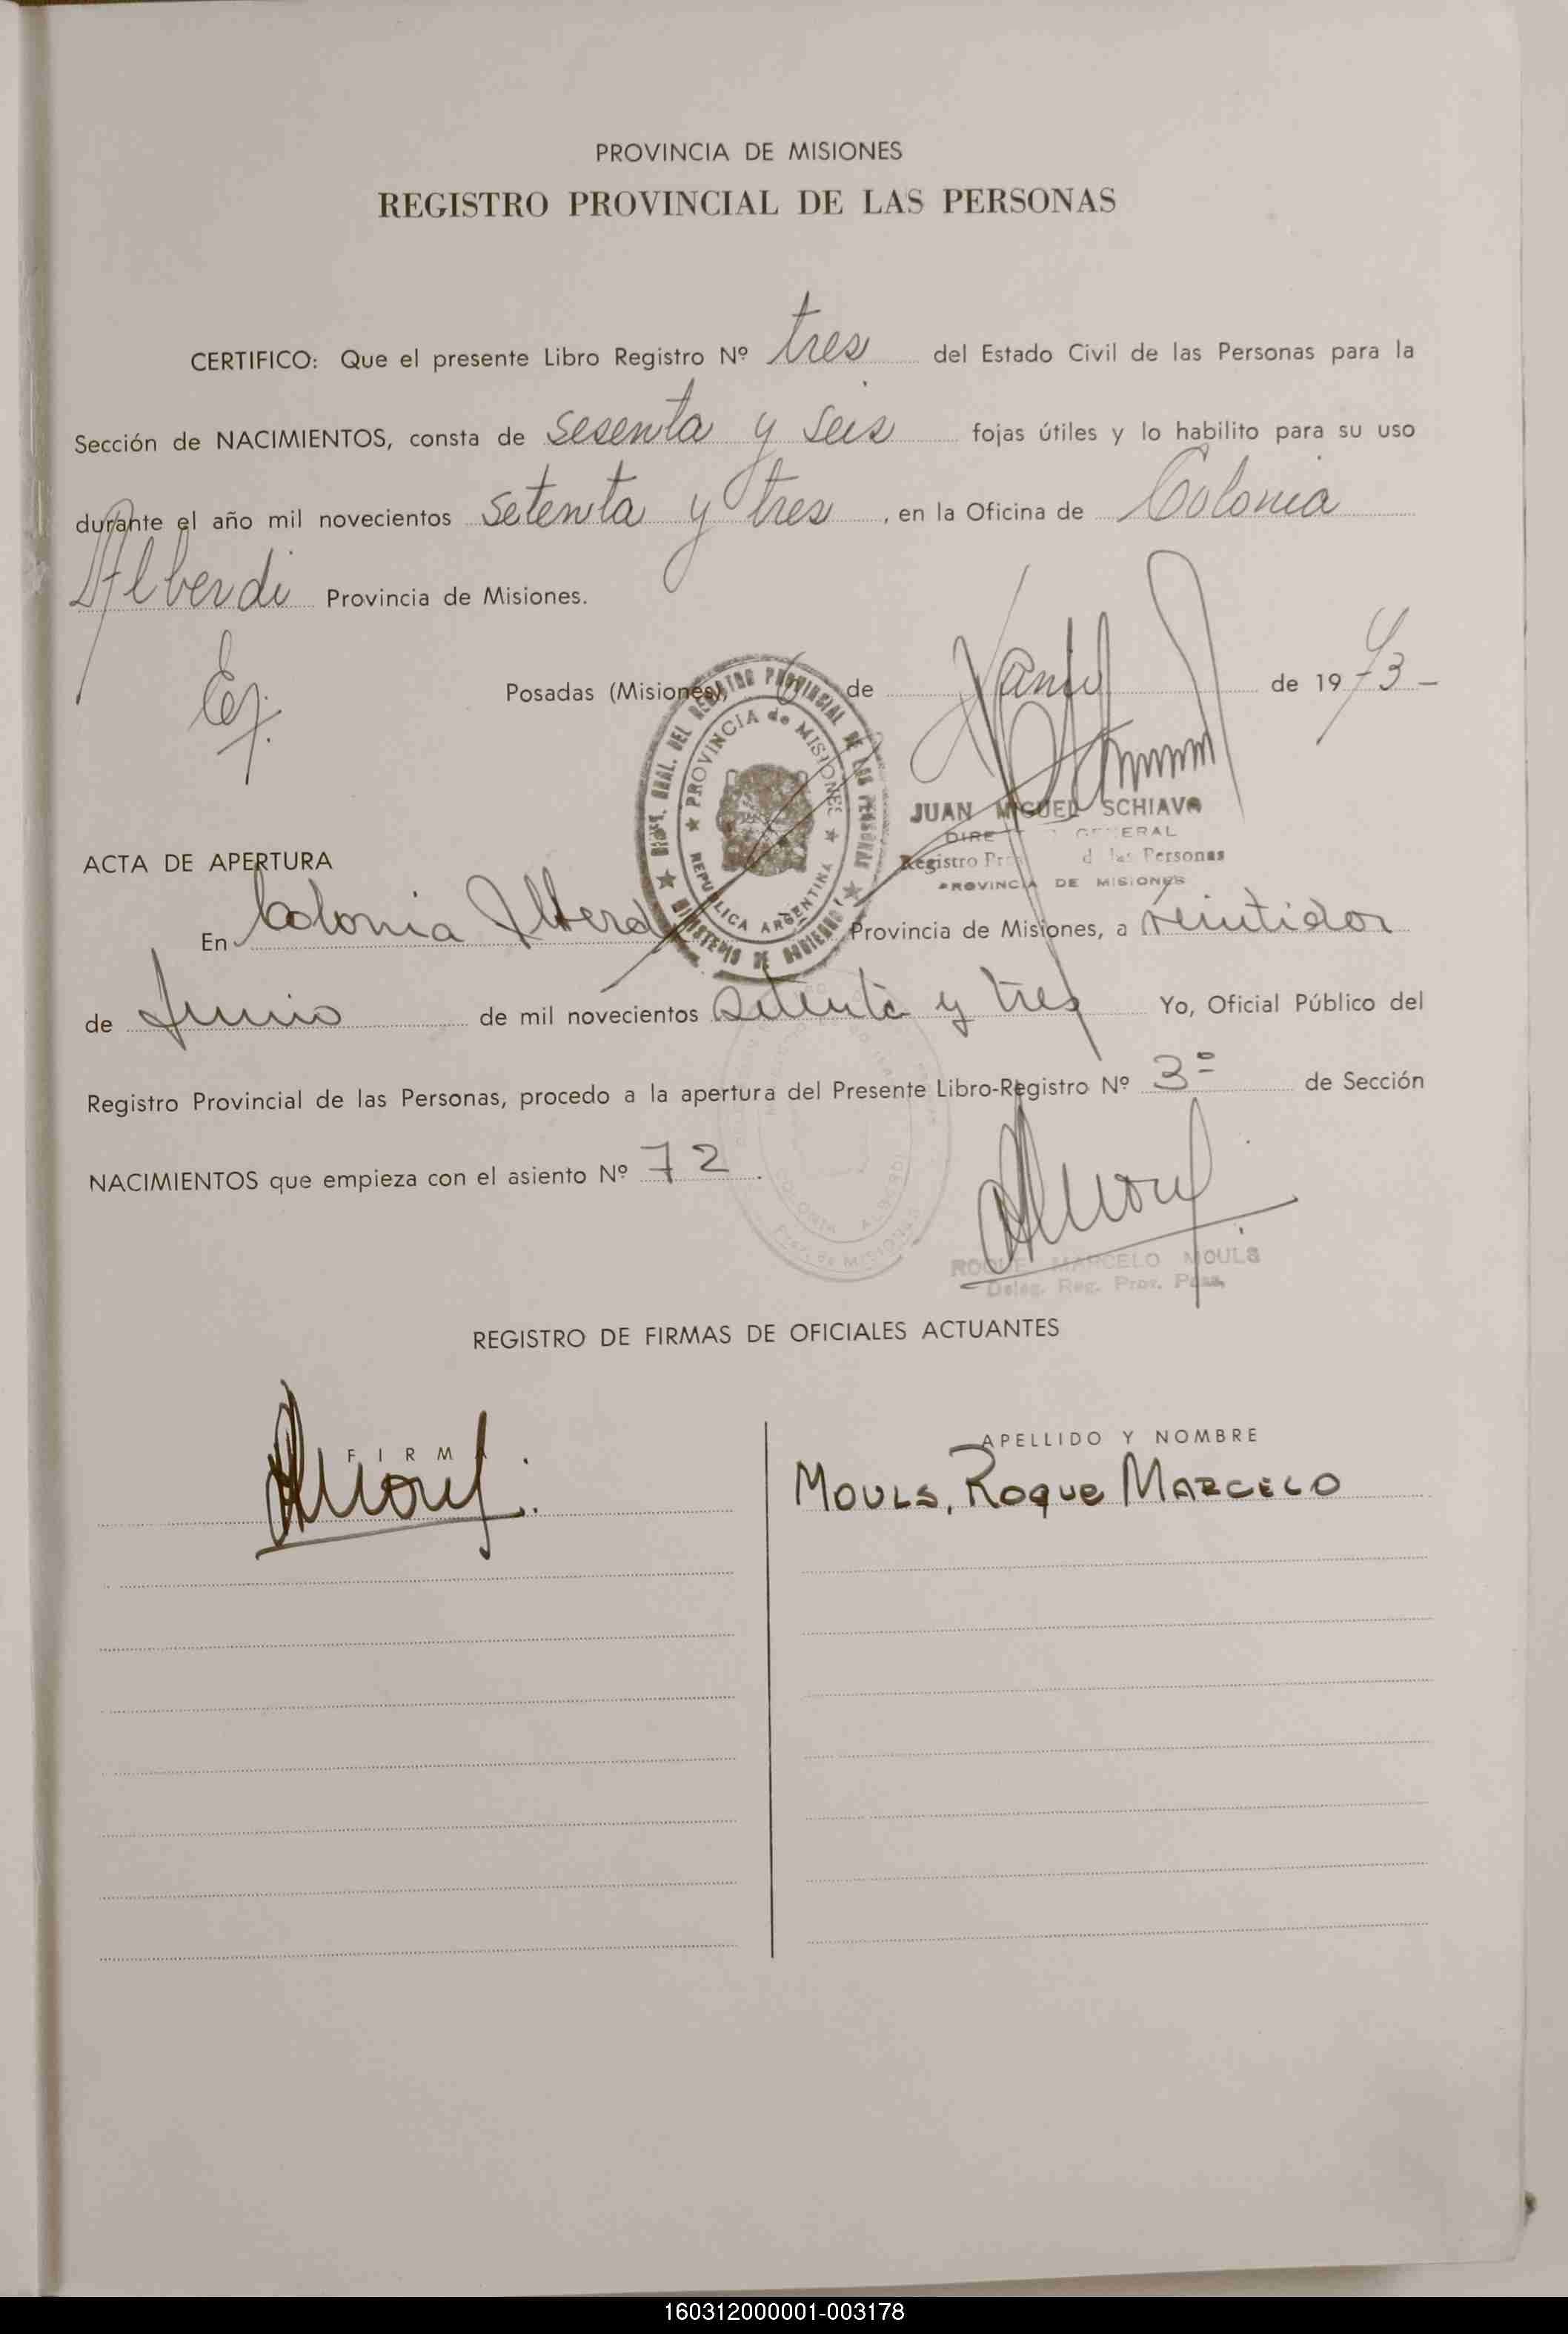 PROVINCIA DE MISIONES
REGISTRO PROVINCIAL DE LAS PERSONAS
CERTIFICO: Que el presente Libro Registro Nº tres del Estado Civil de las Personas para la
Sección de NACIMIENTOS, consta de sesenta y seis fojas útiles y lo habilito para su uso
durante el año mil novecientos setenta y tres, en la Oficina de Colonia
Alberdi Provincia de Misiones.
Ej.
Posadas (Misiones), 6 de de 1973-
DIREC. GRAL. DEL REGISTRO PROVINCIAL DE LAS PERSONAS
MINISTERIO DE GOBIERNO
PROVINCIA de MISIONES
REPUBLICA ARGENTINA
JUAN MIGUEL SCHIAVO
DIRE GENERAL
Registro Pro d las Personas
PROVINCIA DE MISIONES
ACTA DE APERTURA
En Colonia Alberdi Provincia de Misiones, a veintidos
de Junio de mil novecientos setenta y tres Yo, Oficial Público del
Registro Provincial de las Personas, procedo a la apertura del Presente Libro-Registro Nº 3º de Sección
NACIMIENTOS que empieza con el asiento Nº 72.
COLONIA ALBERDI
Prov. de MISIONES
ROQUE MARCELO MOULS
Deleg. Reg. Prov. Pers.
REGISTRO DE FIRMAS DE OFICIALES ACTUANTES
FIRMA
APELLIDO Y NOMBRE
MOULS, ROQUE MARCELO
160312000001-003178